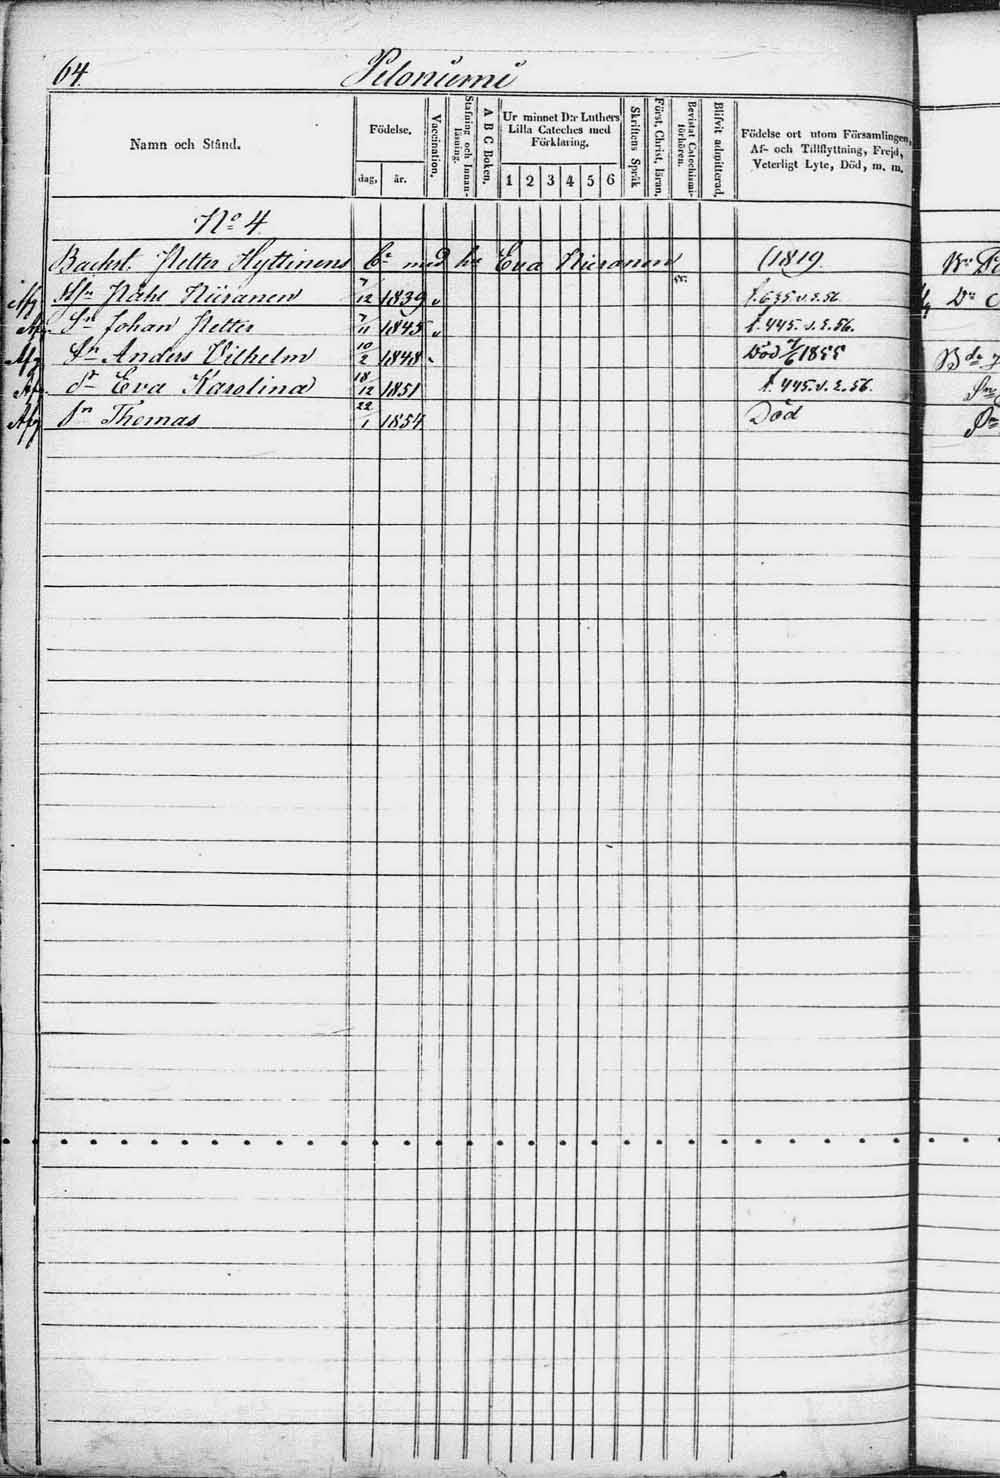 64.
Pelonumi
Namn och Stånd.
Födelse.
dag.
år.
Vaccination.
Stafning och Innan-
läsning.
A B C Boken.
Ur minnet D:r Luthers
Lilla Cateches med
Förklaring.
1 2 3 4 5 6
Skriftens Språk
Först. Christ. läran.
Bevistat Catechismi-
förhören.
Blifvit admitterad.
Födelse ort utom Församlingen,
Af- och Tillflyttning, Frejd,
Veterligt Lyte, Död, m. m.
No 4
Backst. Petter Hyttinens med Eva Niiranen (1819.
Påhl Niiranen 7/12 1839
Sn Johan Petter 7/11 1845 f. 445. v. 2. 56.
Sn Anders Vilhelm 10/2 1848 Död 1855
dr Eva Karolina 18/12 1851 f. 445. v. 2. 56.
Sn Thomas 22/1 1854 Död